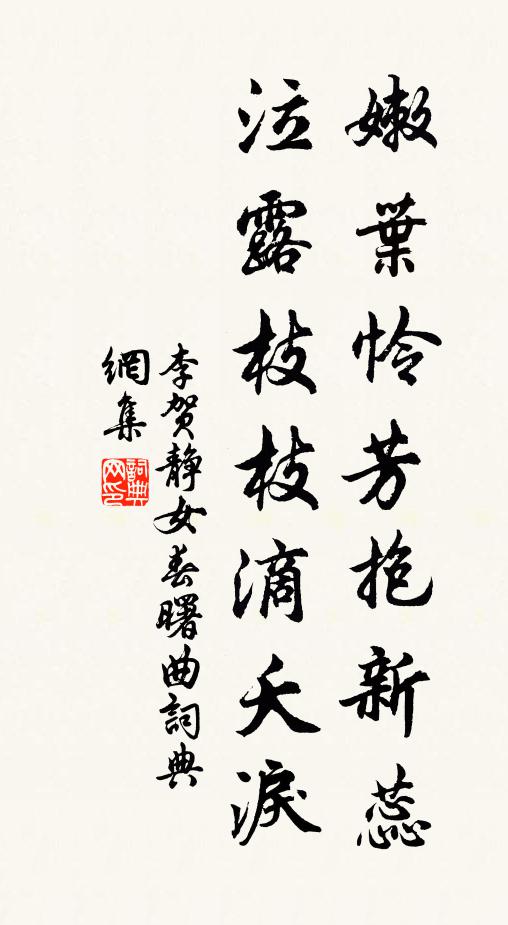 嫩葉怜芳抱新蕊
泣露枝枝滴夭淚
李賀靜女春曙曲詞典
網集
詞典
网印